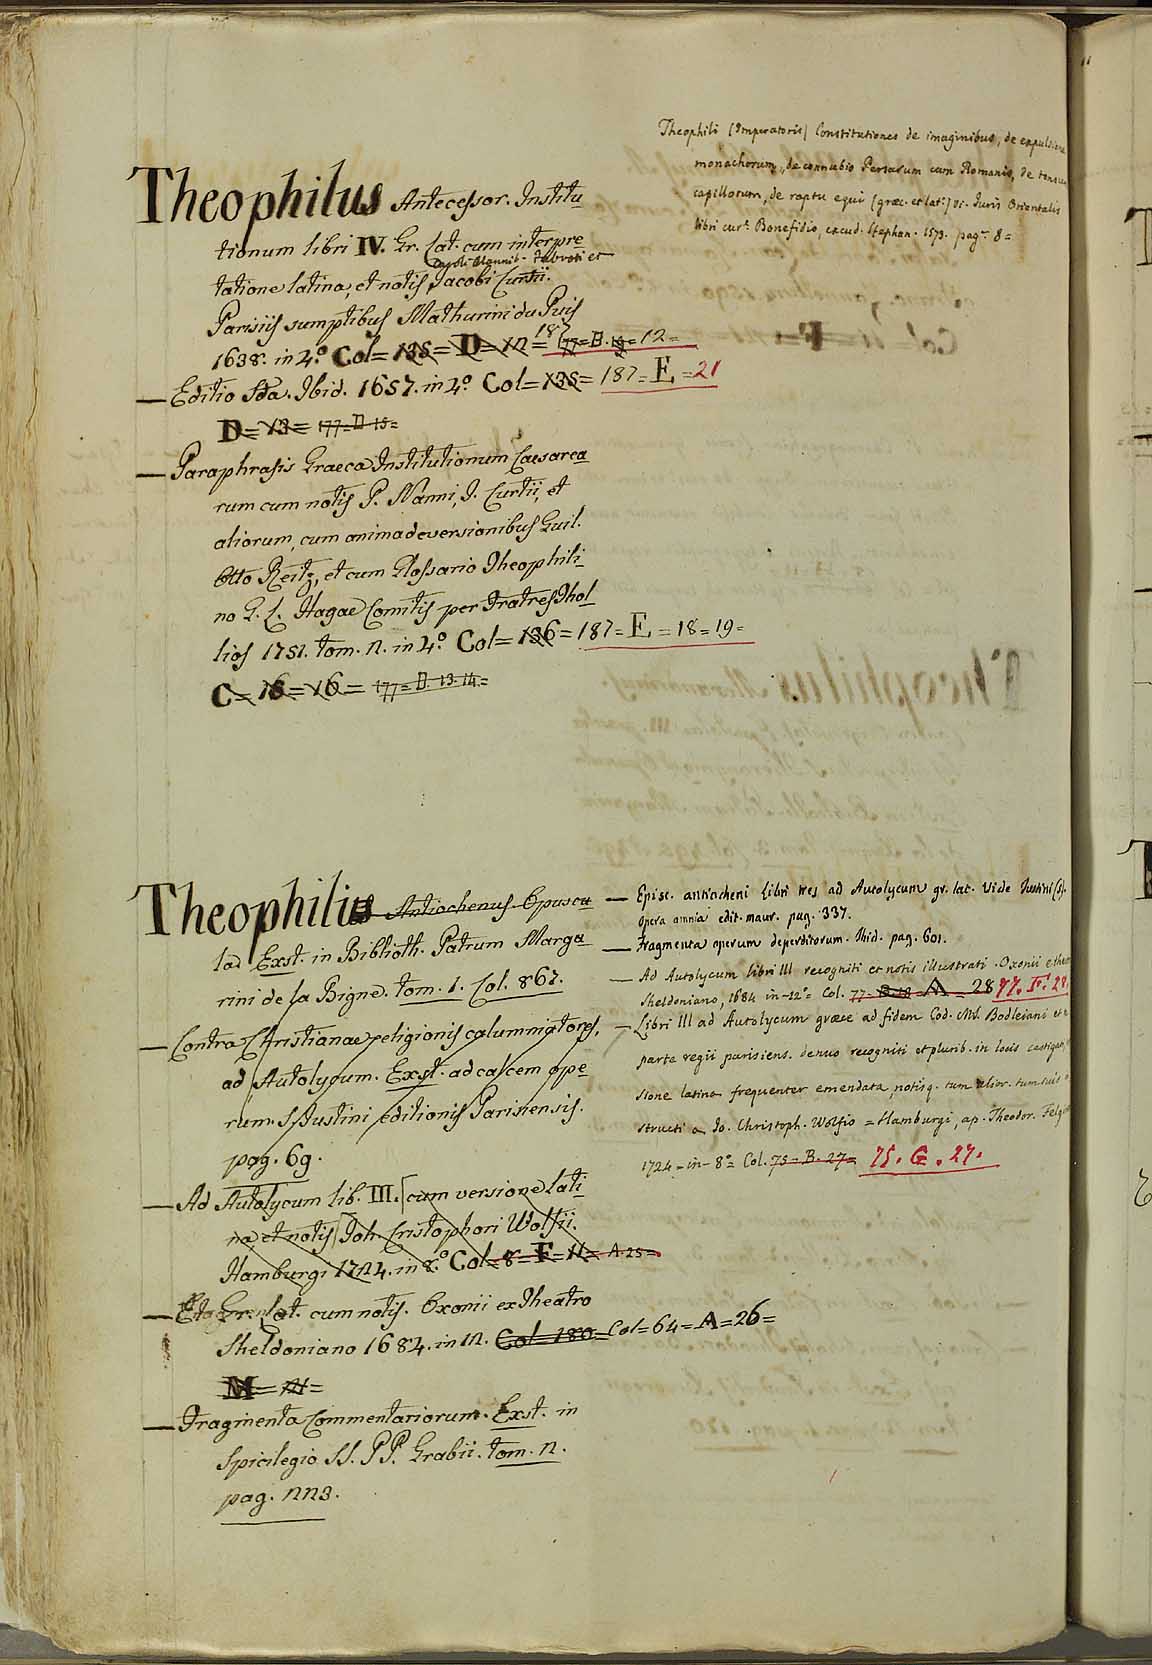 Theophili (Imperatoris) Constitutiones de imaginibus, de expulsione
monachorum, de connubio Persarum cum Romanis, de tonsura
capillorum, de raptu equi (græc. et lat.) vi. Juris Orientalis
libri cur. Bonefidio, excud. Stephan. 1573. pag. 8=
Theophilus Antecessor. Institu
tionum libri IV. Gr. Lat. cum interpre
Caroli Hannib. Fabroti et
tatione latina, et notis Jacobi Curtii.
Parisiis sumptibus Mathurini du Puis
1638. in 4.° Col= 135= D= 12= 187 12=
— Editio 2da. Ibid. 1657. in 4.° Col= 135= 187= E =21
D= 13= 177=D 15=
— Paraphrasis Graeca Institutionum Caesarea
rum cum notis P. Nanni, J. Curtii, et
aliorum, cum animadversionibus Guil.
Otto Reitz, et cum Glossario Theophili
no G. L. Hagae Comitis per Fratres Thol
lios 1751. tom. 2. in 4.° Col= 136= 187= E =18=19=
C= 16= 16= 177=D. 13. 14.=
Theophilus Antiochenus. Opuscu
la. Exst. in Biblioth. Patrum Marga
rini de la Bigne. tom. 1. Col. 867.
— Contra Christianae religionis calumniatores,
ad Autolycum. Exst. ad calcem ope
rum S. Justini editionis Parisiensis.
pag. 69.
— Ad Autolycum lib. III. cum versione lati
na et notis Joh. Cristophori Wolfii.
Hamburgi 1724. in 8.° Col= 8= F= 11= A. 25=
— Gr. Lat. cum notis. Oxonii ex Theatro
Sheldoniano 1684. in 12. Col= 180= Col=64=A=26=
M= 21=
— Fragmenta Commentariorum. Exst. in
Spicilegio SS. PP. Grabii. tom. 2.
pag. 223.
— Episc. antiocheni Libri tres ad Autolycum gr. lat. vide Justini (S).
Opera omnia edit. maur. pag. 337.
— Fragmenta operum deperditorum. Ibid. pag. 601.
— Ad Autolycum libri III recogniti et notis illustrati. Oxonii e thea
Sheldoniano, 1684 in-12° Col. 77= A = 28 77. F. 28.
— Libri III ad Autolycum græce ad fidem Cod. Ms. Bodleiani et
parte regii parisiens. denuo recogniti et plurib. in locis castigati,
sione latina frequenter emendata, notisq. tum alior. tum suis
structi a Jo. Christoph. Wolfio = Hamburgi, ap. Theodor. Felg
1724 - in - 8° Col. 75 - B. 27= 75. G. 27.